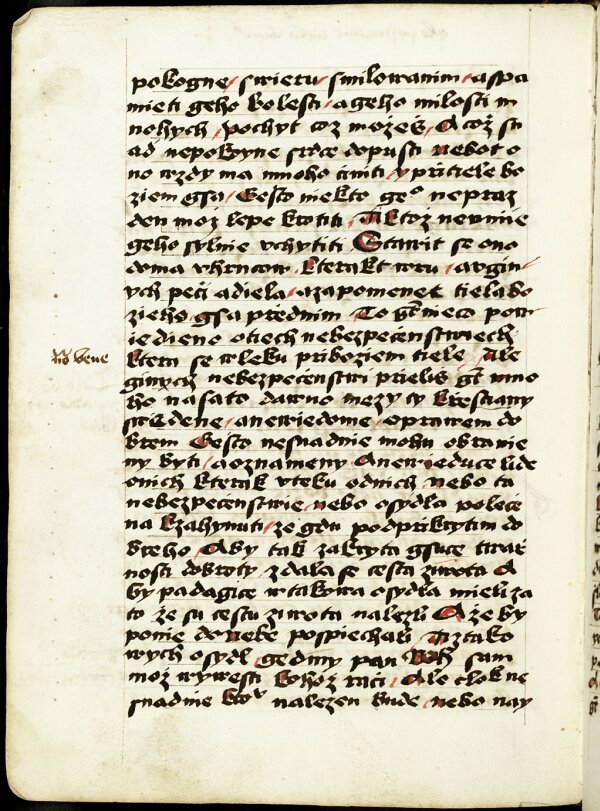 pokogne / swietu / smilowanim / a spa
mieti geho bolesti / a geho milosti m
nohych / pochyt coz mozeš / A což sr
ad nepokoyne srdce dopusti nebot o
no wzdy ma mnoho činiti / y pri tiele bo
ziem gsa / Gesto niekto geo nepraz
den moz lepe krotiti / Tiktoz neumie
geho sylnie vchytiti Stawit se ono
doma vhrncow / kterakt wru / a w gin
ych peči a diela / a zapomenet tiela bo
zieho gsa przednim / To gt nieco pow
iedieno o tiech nebezpečenstwiech
ktera se wleku priboziem tiele / Ale
ginych nebezpečenstwi prielis gt mno
ho nasato dawno mezy ty krestiany
swedene / a newiedome / oprawem do
brem Gesto nesnadnie mohu obranie
ny byti / a oznameny A newieduce lide
onich kterak vteku odnich / nebo ta
nebezpečenstwie / nebo osydla polece
na k zahynuti / ze gdu pod prikrytim do
breho / Aby tak zakryta gsuce twar
nosti dobroty / zdala se cesta zwota A
by padagice w takowa osydla mieli za
to že su cestu ziwota nalezli A že by
ponie do nebe pospiechali Tiztako
wych osydl / gediny pan Boh sam
moz wywesti kohoz raci / Ale člok ne
snadnie kto nalezen bude / nebo nay